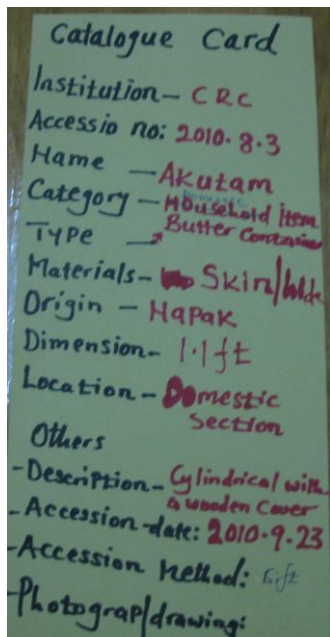 Catalogue Card
Institution - CRC
Accessio no: 2010.8.3
Name - Akutam
Category - Household item
Type → Butter Container
Materials - Skin/hide
Origin - Napak
Dimension - 1.1ft
Location - Domestic
Section
Others
- Description - Cylindrical with
a wooden cover
- Accession date: 2010.9.23
- Accession Method: Gift
- Photograp/drawing: